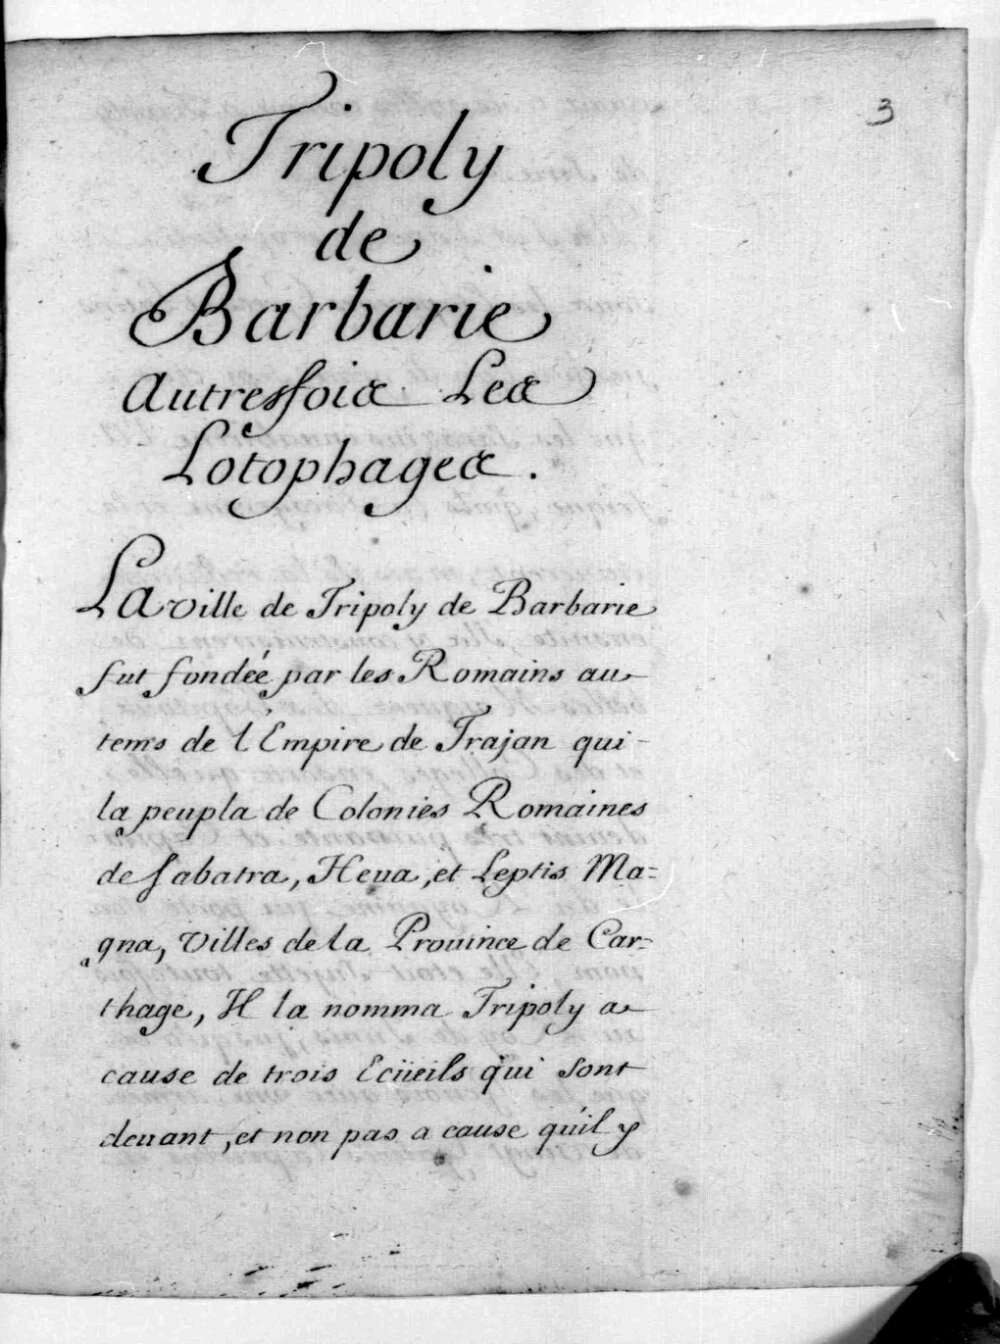 3
Tripoly
de
Barbarie
Autresfois Les
Lotophages.
La ville de Tripoly de Barbarie
fut fondée par les Romains au
tems de l Empire de Trajan qui
la peupla de Colonies Romaines
de Sabatra, Heua, et Leptis Ma=
gna, Villes de la Prouince de Car=
thage, Il la nomma Tripoly a
cause de trois Ecüeils qui sont
deuant, et non pas a cause qu'il y